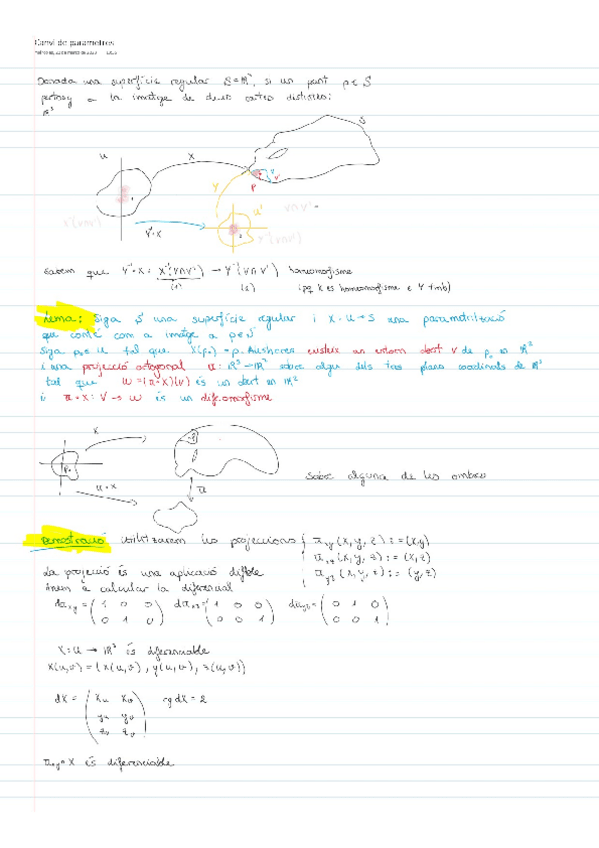 Canvi de parametres
Donada una superfície regular S⊂ℝ³, si un punt p∈S
pertany a la imatge de dues cartes distintes:
ℝ³
U X S
Y p V V'
U' V∩V'
Y⁻¹∘X
Sabem que Y⁻¹∘X: X⁻¹(V∩V') → Y⁻¹(V∩V') homeomorfisme
(pq X es homeomorfisme e Y tmb)
Lema: Siga S una superfície regular i X: U→S una parametrització
que conté com a imatge a p∈S
Siga p₀∈U tal que X(p₀)=p. Aleshores existeix un entorn obert V de p₀ en ℝ²
i una projecció ortogonal π: ℝ³→ℝ² sobre algu dels tres plans coordinats de ℝ³
tal que W=(π∘X)(V) és un obert en ℝ²
i π∘X: V→W és un difeomorfisme
X
p₀ p
π∘X π
sobre alguna de les ombres
Demostració utilitzarem les projeccions
π_xy(x,y,z):=(x,y)
π_xz(x,y,z):=(x,z)
π_yz(x,y,z):=(y,z)
La projecció és una aplicació difble
Anem a calcular la diferencial
dπ_xy=(1 0 0 dπ_xz=(1 0 0 dπ_yz=(0 1 0
0 1 0) 0 0 1) 0 0 1)
X: U → ℝ³ és diferenciable
X(u,v)=(x(u,v), y(u,v), z(u,v))
dX = (x_u x_v rg dX = 2
y_u y_v
z_u z_v)
π_xy∘X és diferenciable